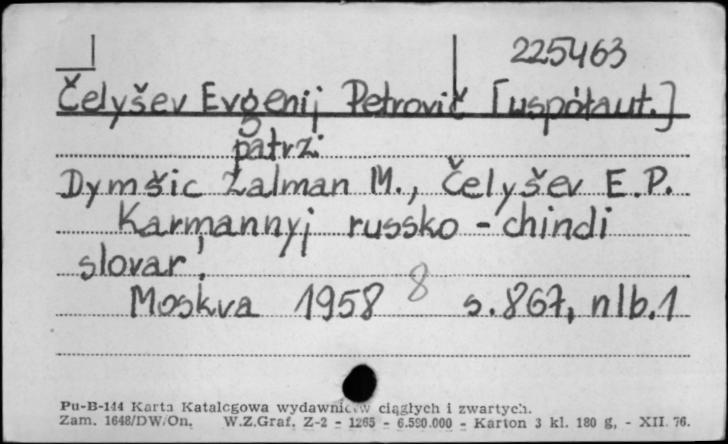 225463
Čelyšev Evgenij Petrovič [uspółaut.]
patrz:
Dymšic Zalman M., Čelyšev E.P.
Karmannyj russko-chindi
slovar'.
Moskva 1958 8 s. 867, nlb. 1
Pu-B-144 Karta Katalogowa wydawnictw ciągłych i zwartych.
Zam. 1648/DW/On. W.Z.Graf. Z-2 - 1265 - 6.590.000 - Karton 3 kl. 180 g, - XII. 76.